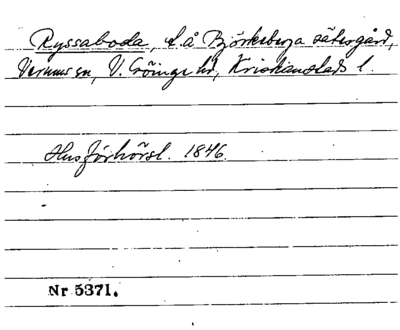 Ryssaboda, l.å Björkeberga sätesgård,
Verums sn, V. Göinge hd, Kristianstads l.
Husförhörsl. 1846.
Nr 5371.